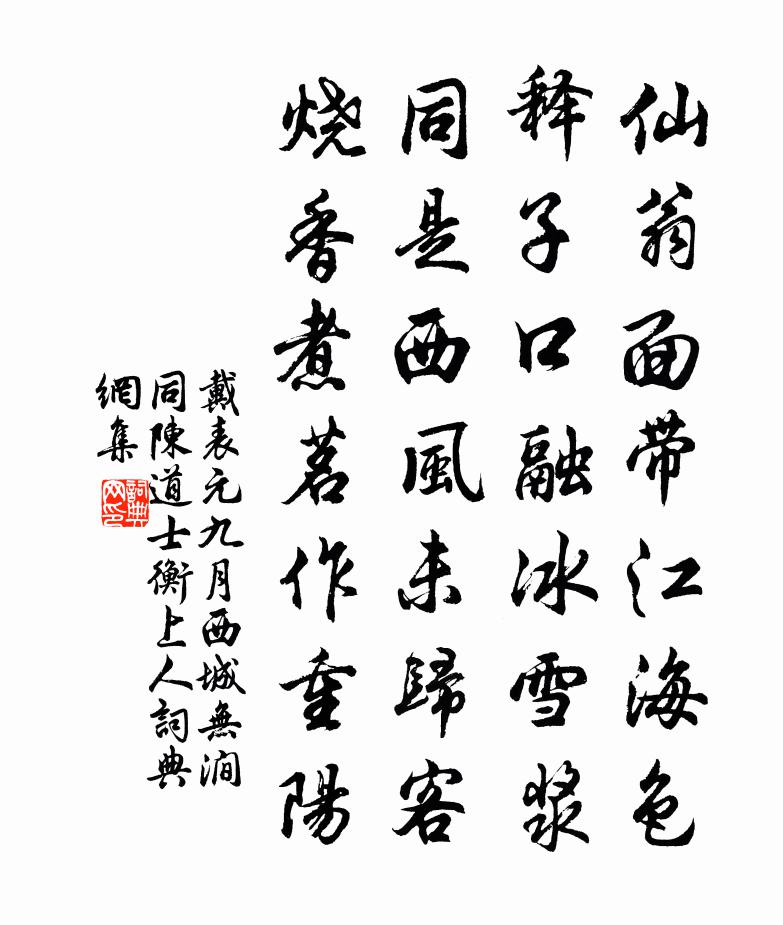 仙翁面带江海色
释子口融冰雪浆
同是西風未歸客
烧香煮茗作重陽
戴表元九月西城無涧
同陳道士衡上人詞典
網集
詞典
网印